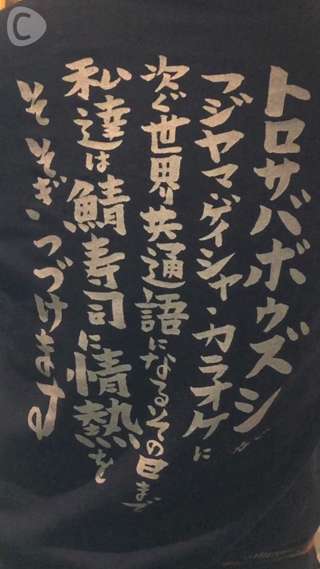 トロサバボウズシが
フジヤマ・ゲイシャ・カラオケに
次ぐ世界共通語になるその日まで
私達は鯖寿司に情熱を
そそぎ、つづけます。